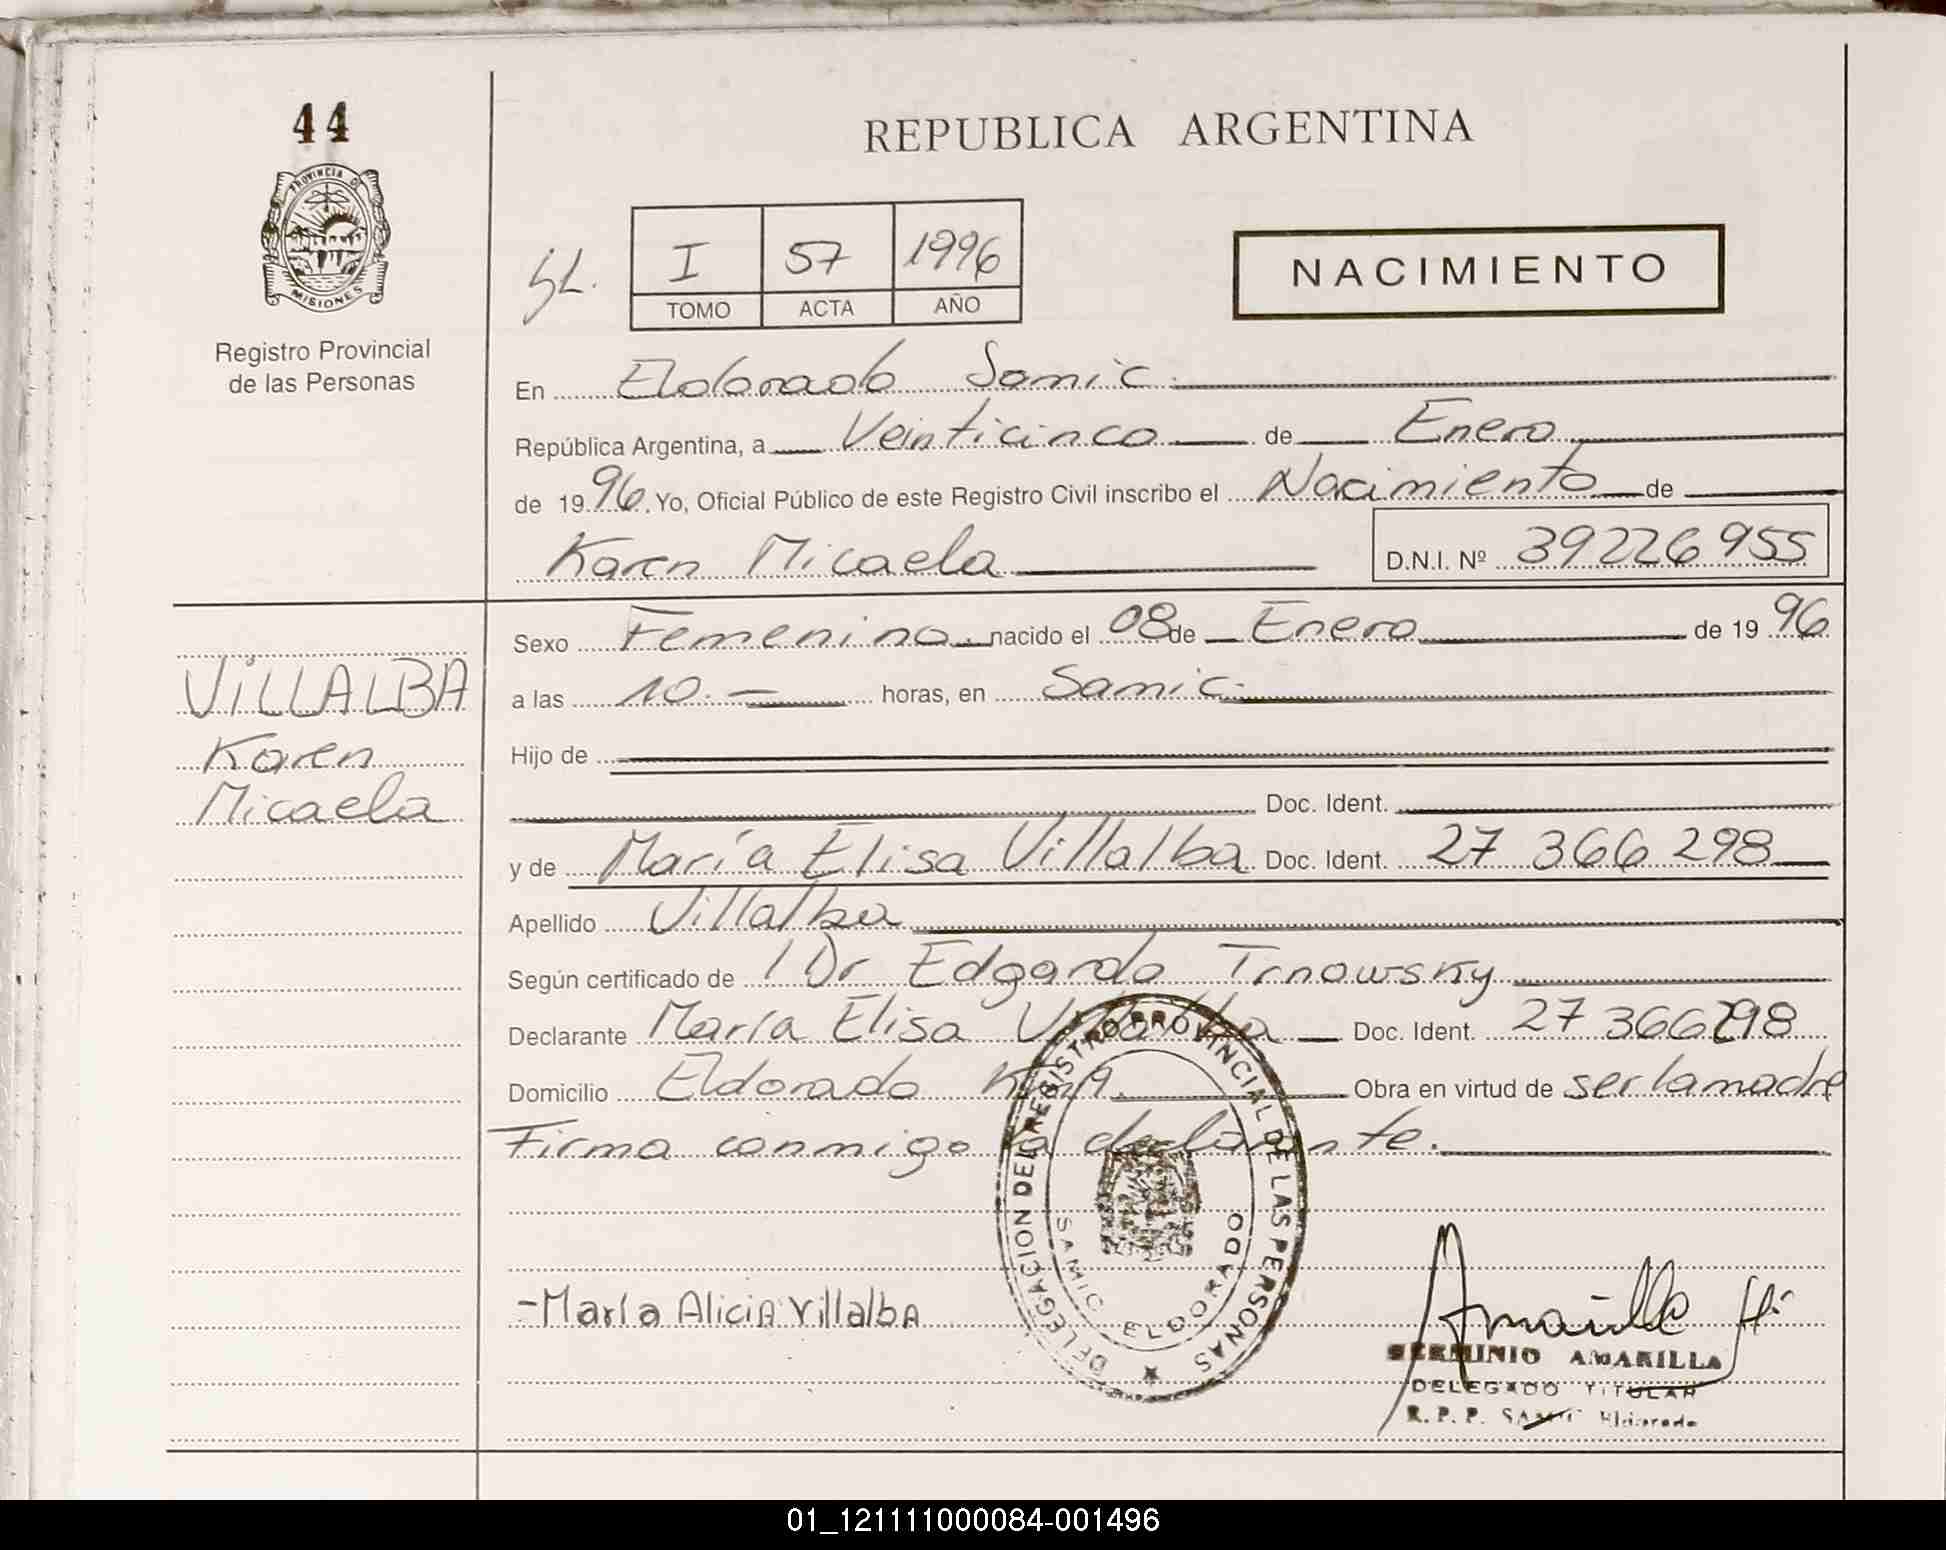 44
PROVINCIA D
MISIONES
Registro Provincial
de las Personas
REPUBLICA ARGENTINA
I 57 1996
TOMO ACTA AÑO
NACIMIENTO
En Eldorado Samic.
República Argentina, a Veinticinco de Enero
de 1996. Yo, Oficial Público de este Registro Civil inscribo el Nacimiento de
Karen Micaela D.N.I. Nº 39226955
VILLALBA
Karen
Micaela
Sexo Femenino nacido el 08 de Enero de 1996
a las 10.- horas, en Samic.
Hijo de
Doc. Ident.
y de María Elisa Villalba Doc. Ident. 27 366 298
Apellido Villalba
Según certificado de Dr Edgardo Trnowsky
Declarante María Elisa Villalba Doc. Ident. 27 366298
Domicilio Eldorado Obra en virtud de ser la madre
Firma conmigo la declarante.
DELEGACION DEL REGISTRO PROVINCIAL DE LAS PERSONAS
SAMIC ELDORADO
-María Alicia Villalba
Amarilla H.
HERMINIO AMARILLA
DELEGADO TITULAR
R. P. P. SAMIC Eldorado
01_121111000084-001496